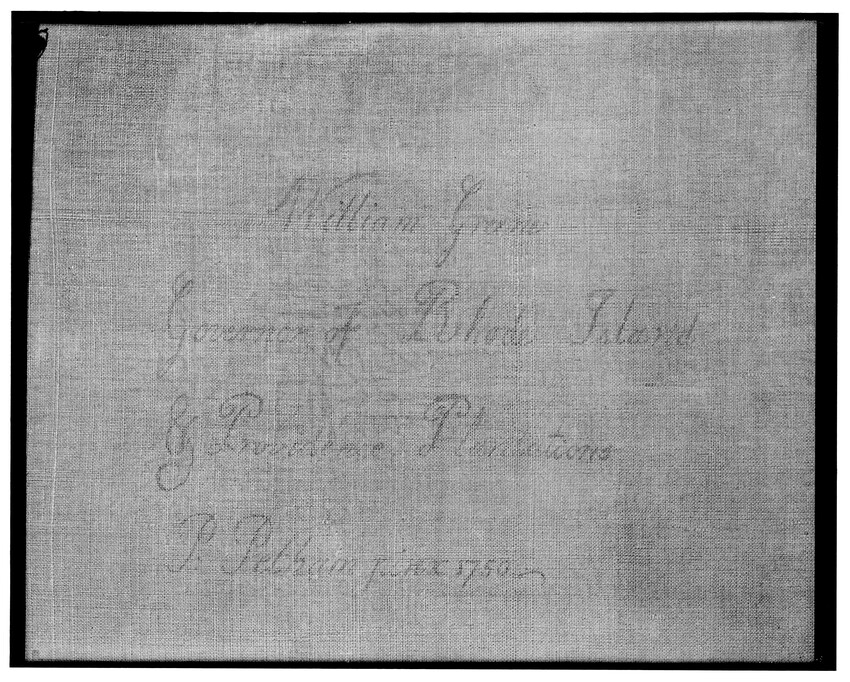 William Greene
Governor of Rhode Island
& Providence Plantations
P. Pelham pinx 1750